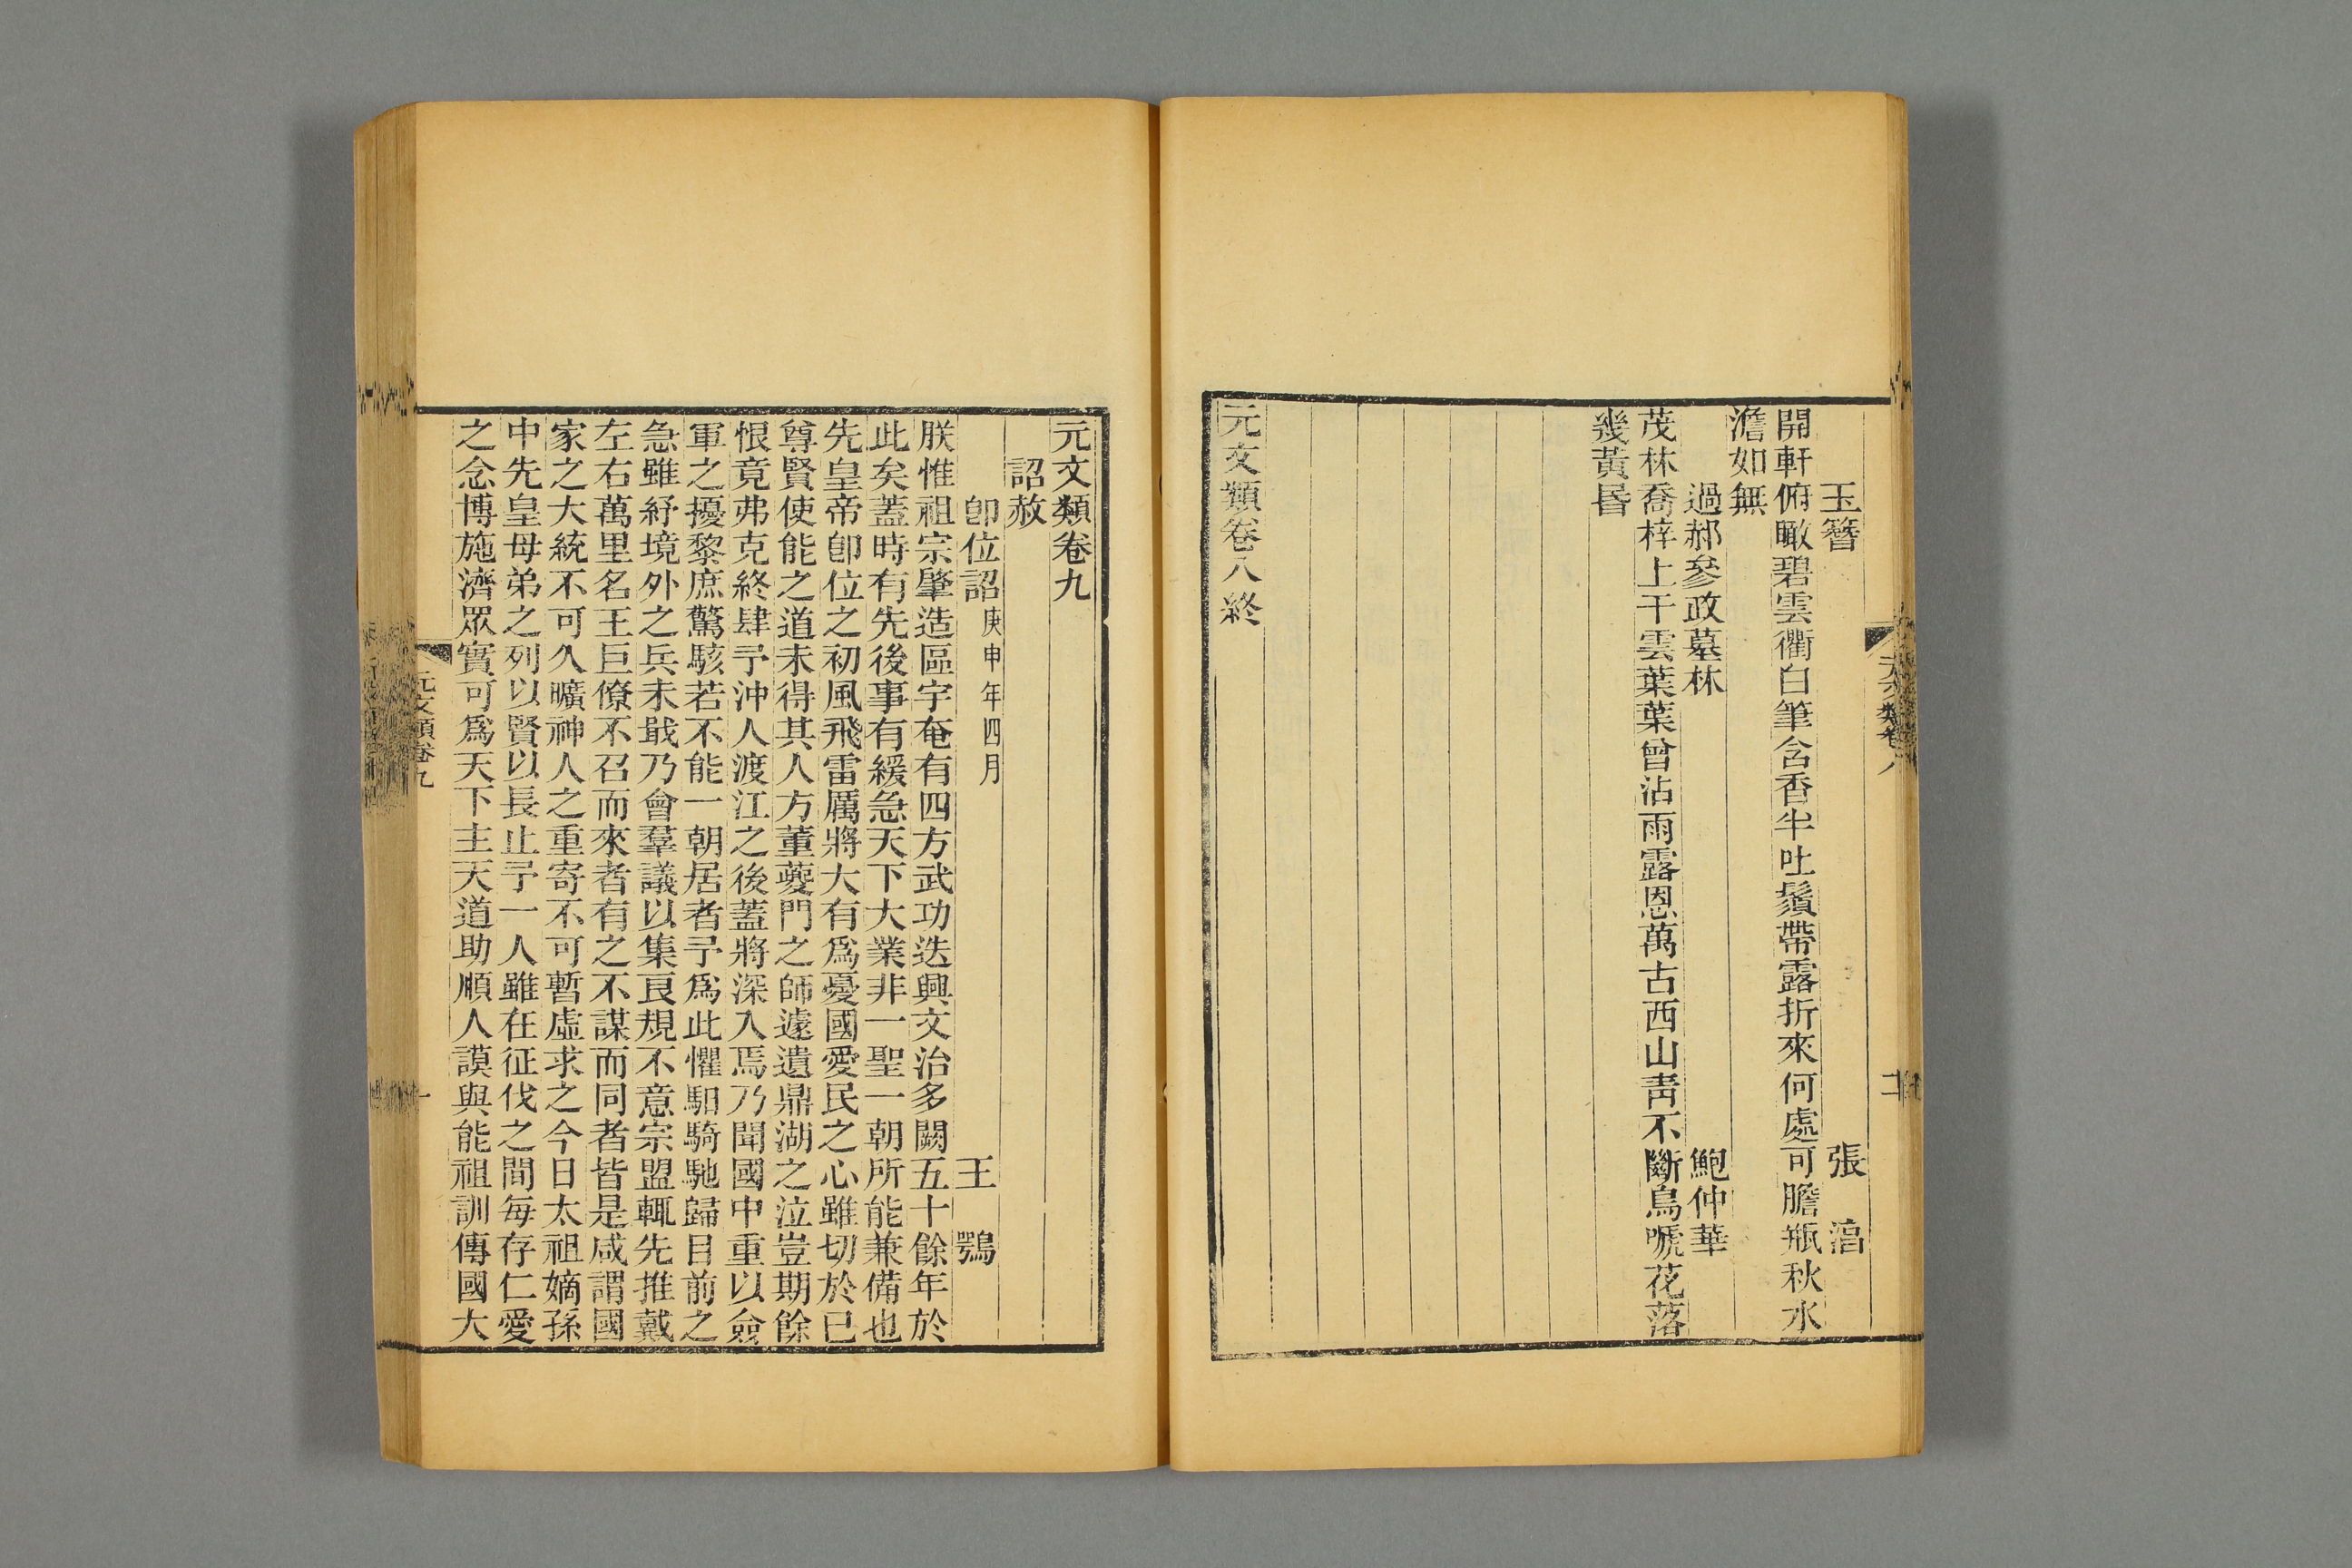 玉簪　張 湻
開軒俯瞰碧雲衢白筆含香半吐鬚帶露折來何處可膽瓶秋水
澹如無
過郝參政墓林　鮑仲華
茂林喬梓上干雲葉葉曾沾雨露恩萬古西山靑不斷鳥嗁花落
幾黃昬
元文類卷八終
元文類卷九
詔赦
卽位詔庚申年四月　王 鶚
朕惟祖宗肇造區宇奄有四方武功迭興文治多闕五十餘年於
此矣蓋時有先後事有緩急天下大業非一聖一朝所能兼備也
先皇帝卽位之初風飛雷厲將大有爲憂國愛民之心雖切於己
尊賢使能之道未得其人方董夔門之師遽遺鼎湖之泣豈期餘
恨竟弗克終肆予沖人渡江之後蓋將深入焉乃聞國中重以僉
軍之擾黎庶驚駭若不能一朝居者予爲此懼馹騎馳歸目前之
急雖紓境外之兵未戢乃會羣議以集良規不意宗盟輒先推戴
左右萬里名王巨僚不召而來者有之不謀而同者皆是咸謂國
家之大統不可久曠神人之重寄不可暫虛求之今日太祖嫡孫
中先皇母弟之列以賢以長止予一人雖在征伐之間每存仁愛
之念博施濟眾實可爲天下主天道助順人謨與能祖訓傳國大
元文類卷九
一